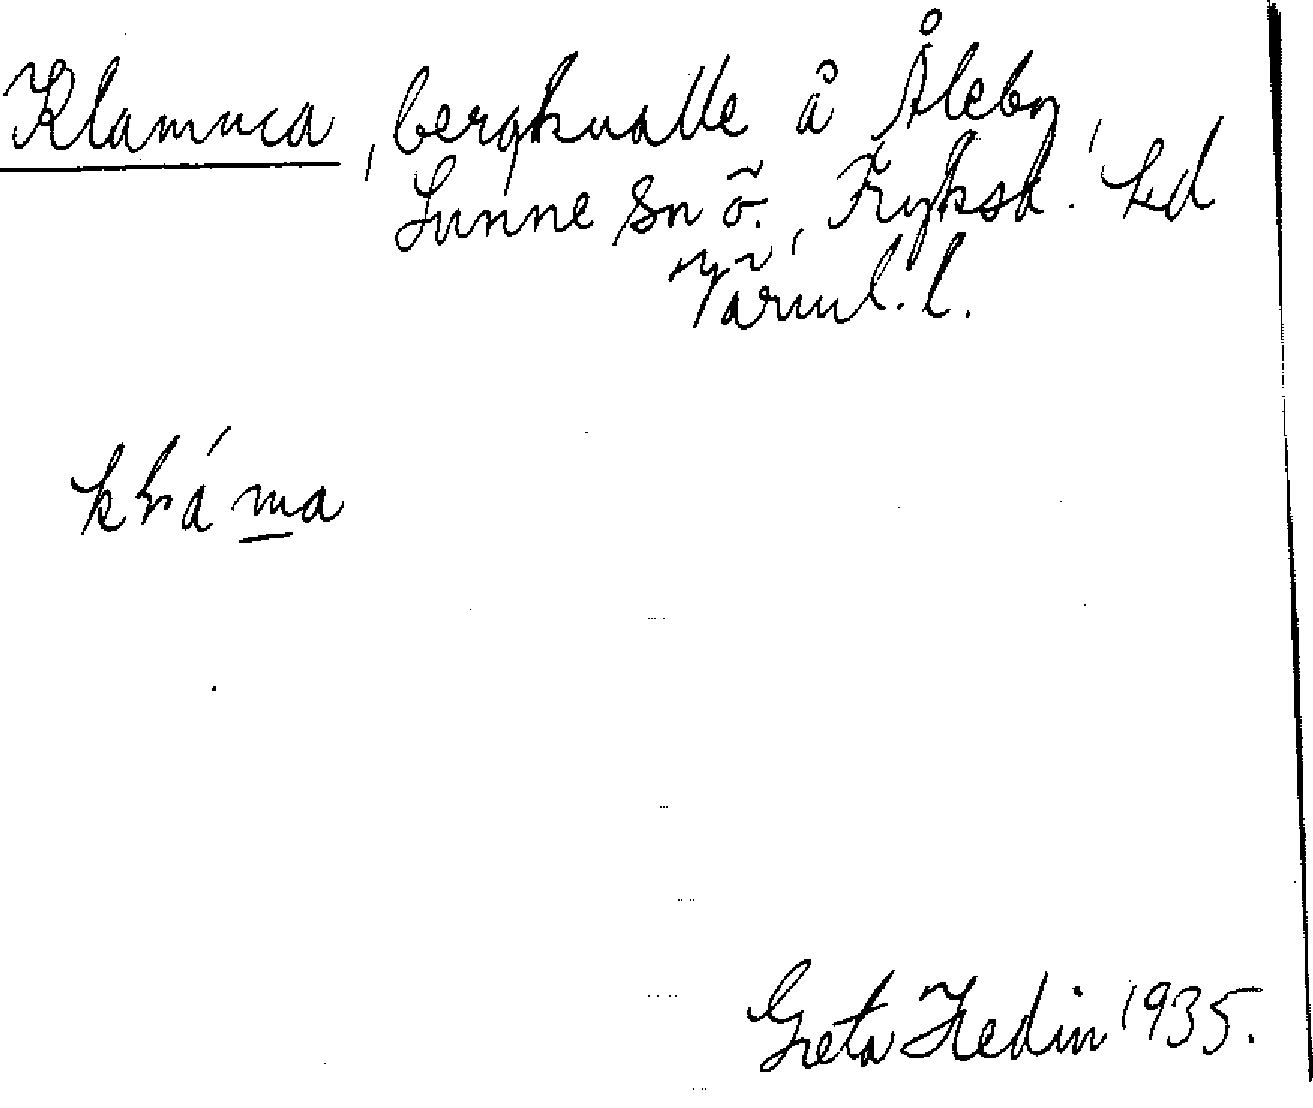 Klamma, bergkulle å Åleby,
Sunne sn ö., Fryksd. hd
Värml. l.
Greta Hedin 1935.